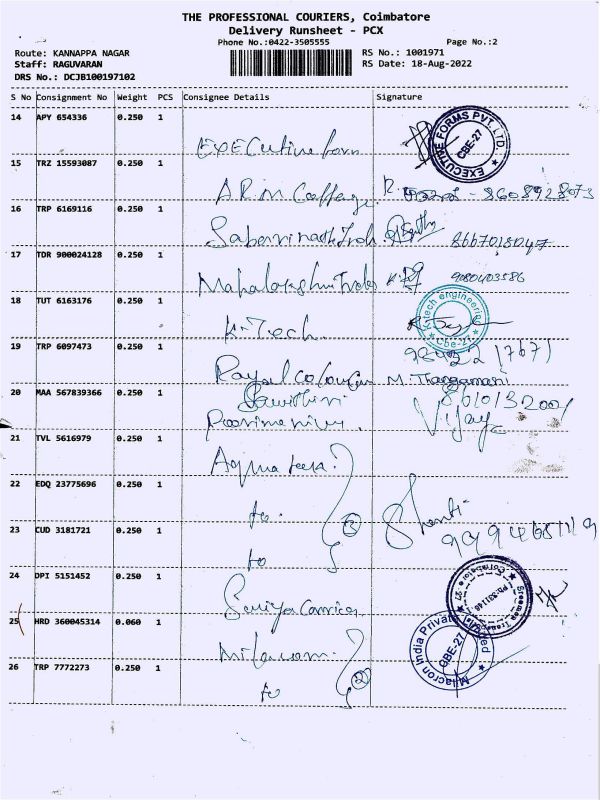 THE PROFESSIONAL COURIERS, Coimbatore
Delivery Runsheet - PCX
Phone No.:0422-3505555
Page No.:2
Route: KANNAPPA NAGAR
RS No.: 1001971
Staff: RAGUVARAN
RS Date: 18-Aug-2022
DRS No.: DCJB100197102
S No Consignment No Weight PCS Consignee Details Signature
14 APY 654336 0.250 1
EXECUTIVE FORMS PVT. LTD. CBE-27
Executive form
15 TRZ 15593087 0.250 1
ARM
8608928073
16 TRP 6169116 0.250 1
8667018047
17 TDR 900024128 0.250 1
9080403586
18 TUT 6163176 0.250 1
K-tech engineering Cbe-27
K-Tech
19 TRP 6097473 0.250 1
98422 (767)
Royal M. Thangamani
20 MAA 567839366 0.250 1
Vijay
21 TVL 5616979 0.250 1
22 EDQ 23775696 0.250 1
to. 3 Shanti
23 CUD 3181721 0.250 1
to
24 DPI 5151452 0.250 1
25 HRD 360045314 0.060 1
Milacron India Private Limited CBE-27
26 TRP 7772273 0.250 1
to 2